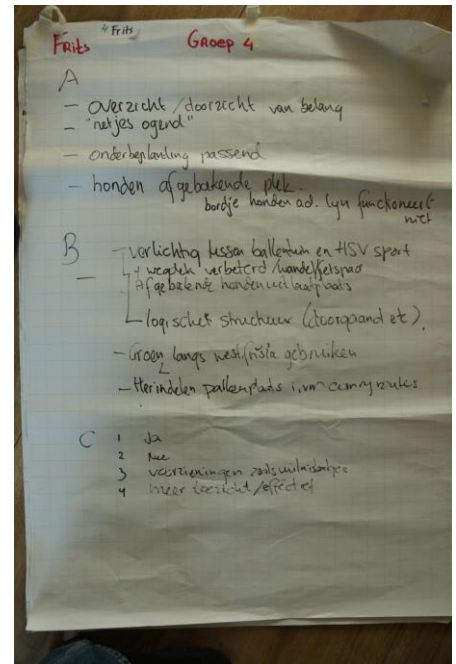 Frits
Frits Groep 4
A
- overzicht / doorzicht van belang
- "netjes ogend"
- onderbeplanting passend
- honden afgebakende plek.
bordje honden a.d. lijn functioneert
niet
B - verlichting tussen ballentuin en HSV sport
- + wegdek verbeterd / wandel/fietspad
Afgebakende hondenuitlaatplaats
- logischer structuur (doorgaand etc).
- Groen langs westfrisia gebruiken
- Herindelen parkeerplaats i.v.m.
C 1 Ja
2 Nee
3 voorzieningen zoals vuilnisbakjes
4 meer toezicht / effectief